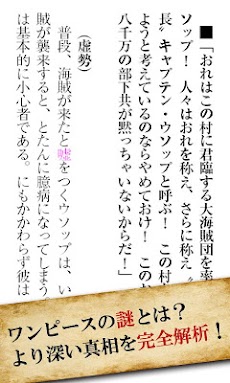 ■「おれはこの村に君臨する大海賊団を率
ソップ！　人々はおれを称え、さらに称え〝
長〟キャプテン・ウソップと呼ぶ！　この村
ようと考えているのならやめておけ！　このお
八千万の部下共が黙っちゃいないからだ！」
（虚勢）
普段、海賊が来たと嘘をつくウソップは、い
賊が襲来すると、とたんに臆病になってしまう
は基本的に小心者である。にもかかわらず彼は
ワンピースの謎とは？
より深い真相を完全解析！